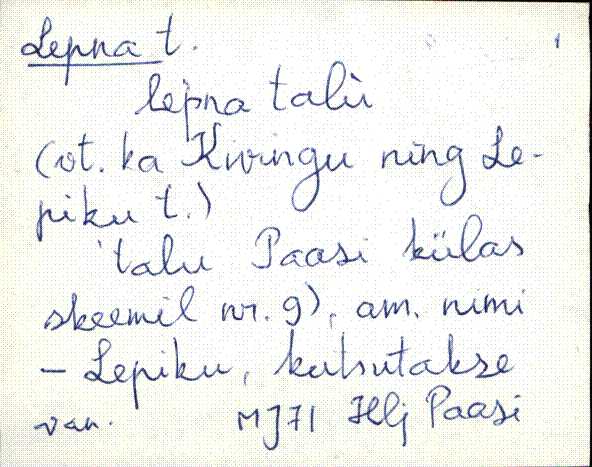 Lepna t. 1
lepna talù
(vt. ka Kivingu ning Le-
piku t.)
'talu Paasi külas
skeemil nr. 9), am. nimi
- Lepiku, kutsutakse
van. MJ71 Hlj Paasi